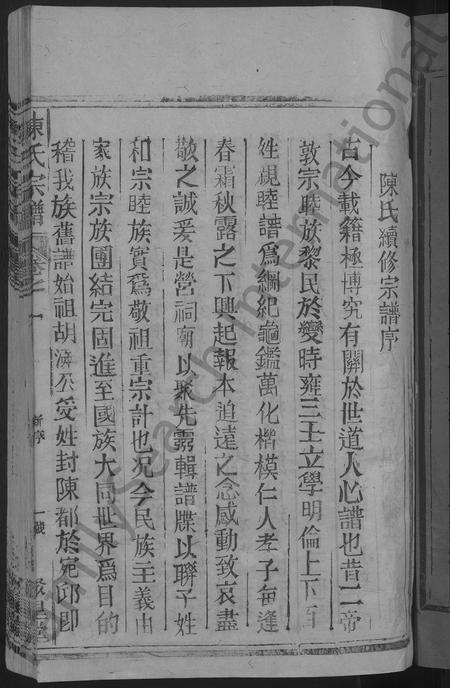 陳氏續修宗譜序
古今載籍極博究有關於世道人心譜也昔二帝
敦宗睦族黎民於變時雍三王立學明倫上下百
姓親睦譜爲綱紀龜鑑萬化楷模仁人孝子每逢
春霜秋露之下興起報本追遠之念感動致哀盡
敬之誠爰是營祠廟以聚先靈輯譜牒以聯子姓
和宗睦族實爲敬祖重宗計也況今民族主義由
家族宗族團結完固進至國族大同世界爲目的
稽我族舊譜始祖胡滿公受姓封陳都於宛邱卽
陳氏宗譜 卷之一 新序 一
FamilySearch International